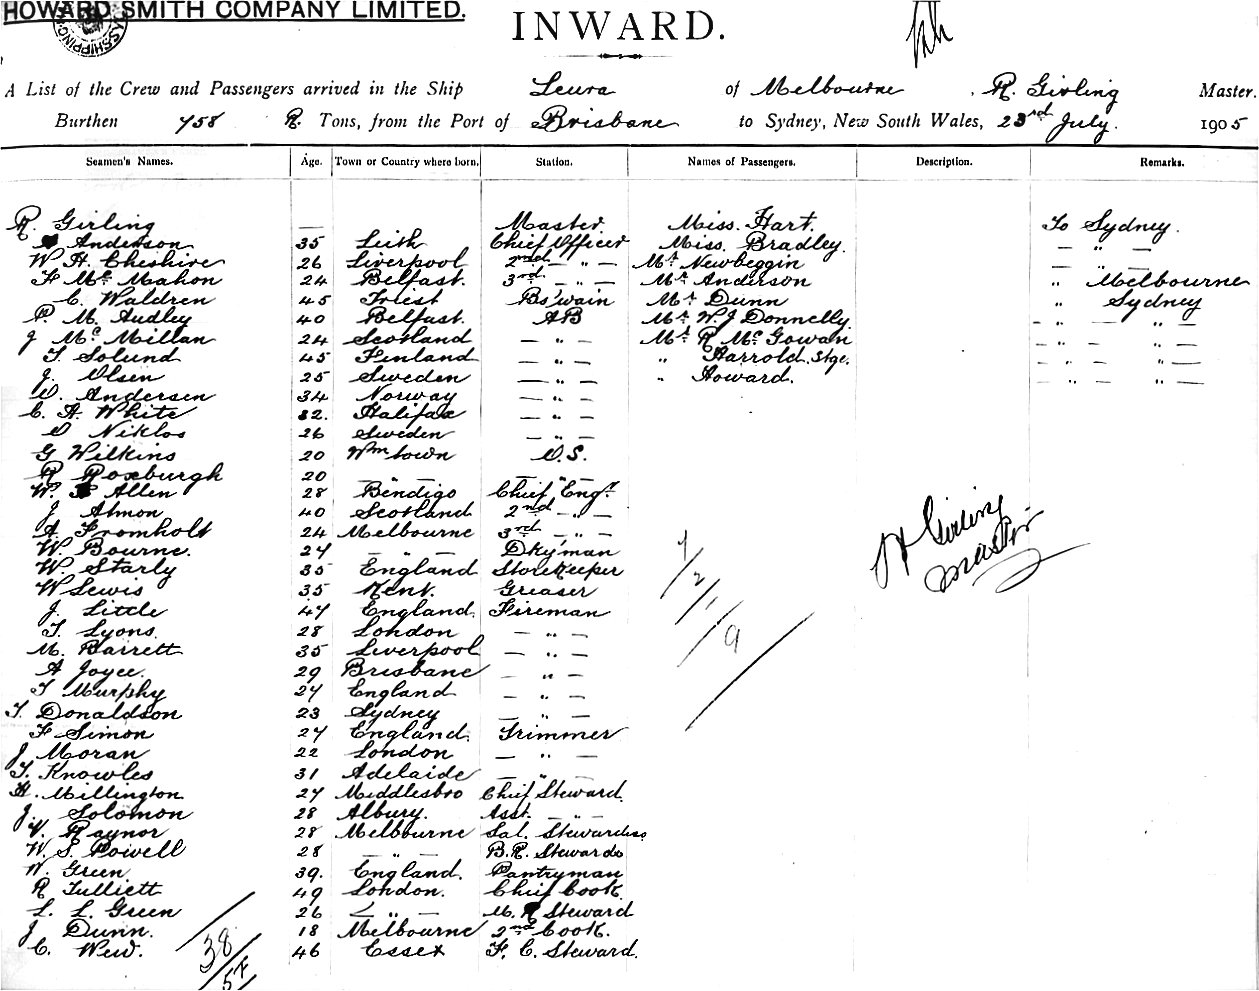 HOWARD SMITH COMPANY LIMITED.
SHIPPING
INWARD.
A List of the Crew and Passengers arrived in the Ship Leura of Melbourne, R. Girling Master.
Burthen 758 R. Tons, from the Port of Brisbane to Sydney, New South Wales, 23rd July. 1905
Seamen's Names. Age. Town or Country where born. Station. Names of Passengers. Description. Remarks.
R. Girling — Master. Miss. Hart. To Sydney.
Anderson 35 Leith Chief Officer Miss. Bradley. — " —
W H. Cheshire 26 Liverpool 2nd — " — Mr Newbeggin — " —
F Mc Mahon 24 Belfast. 3rd — " — Mr Anderson " Melbourne
C. Waldren 45 Triest Bs'wain Mr Dunn " Sydney
P. M. Audley 40 Belfast. AB Mr W. J Donnelly. — " — " —
J Mc Millan 24 Scotland — " — Mr R Mc Gowan — " — " —
T. Solund 45 Finland — " — " Harrold. Stge. — " — " —
J. Olsen 25 Sweden — " — " Howard. — " — " —
O. Andersen 34 Norway — " —
C. A. White 32. Halifax — " —
Niklos 26 Sweden — " —
G Wilkins 20 Wm town O.S.
R Roxburgh 20 — " — — " —
W. Allen 28 Bendigo Chief Engr.
J Almon 40 Scotland 2nd — " —
A Fromholt 24 Melbourne 3rd — " —
W. Bourne. 27 — " — Dky'man
W. Starly 35 England Storekeeper
W Lewis 35 Kent. Greaser
J. Little 47 England. Fireman
T. Lyons. 28 London — " —
M. Barrett 35 Liverpool — " —
A Joyce. 29 Brisbane — " —
T Murphy 27 England — " —
T. Donaldson 23 Sydney — " —
F Simon 27 England. Trimmer
J Moran 22 London — " —
T. Knowles 31 Adelaide — " —
H. Millington 27 Middlesbro Chief Steward.
J. Solomon 28 Albury. Asst. — " —
V. Raynor 28 Melbourne Sal. Stewardess
W. S. Powell 28 — " — B.R. Stewards
W. Green 39. England. Pantryman
R Tulliett 49 London. Chief Cook.
L. L. Green 26 — " — M. R Steward
J Dunn. 18 Melbourne 2nd Cook.
C. Weid. 46 Essex F. C. Steward.
R Girling
Master
1/2/1/9
38/57